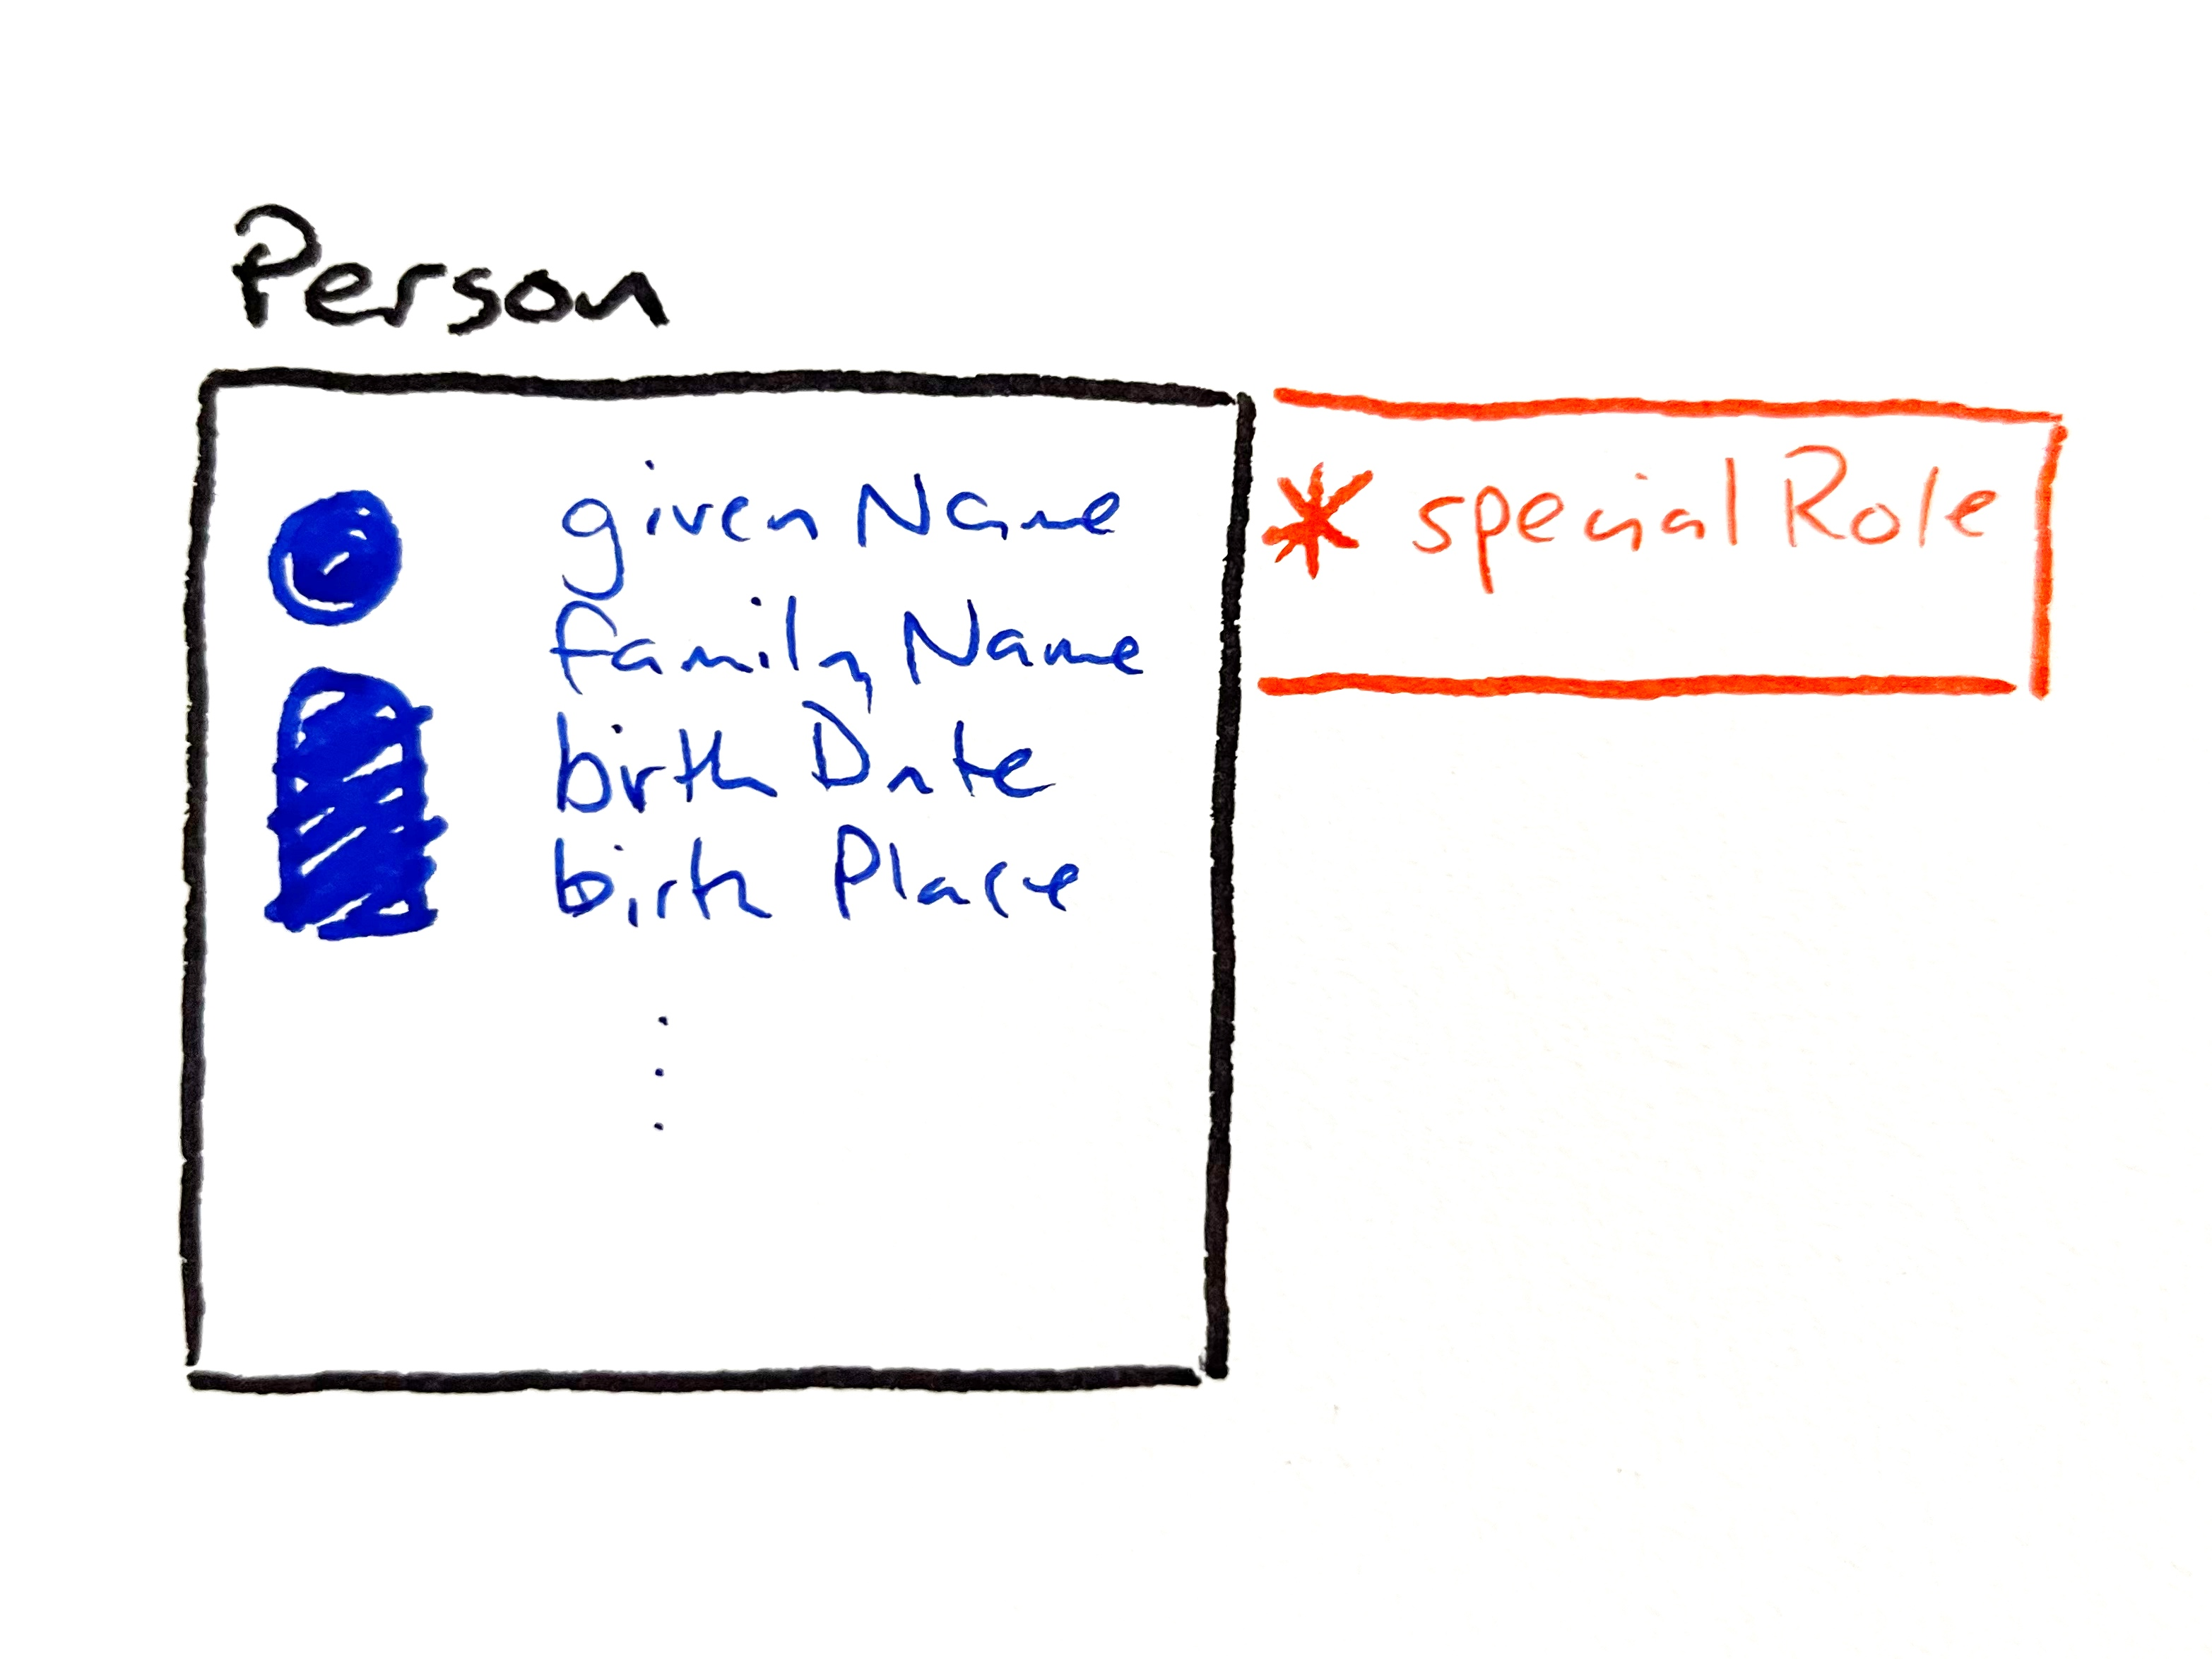 Person
given Name
family Name
birth Date
birth Place
* special Role